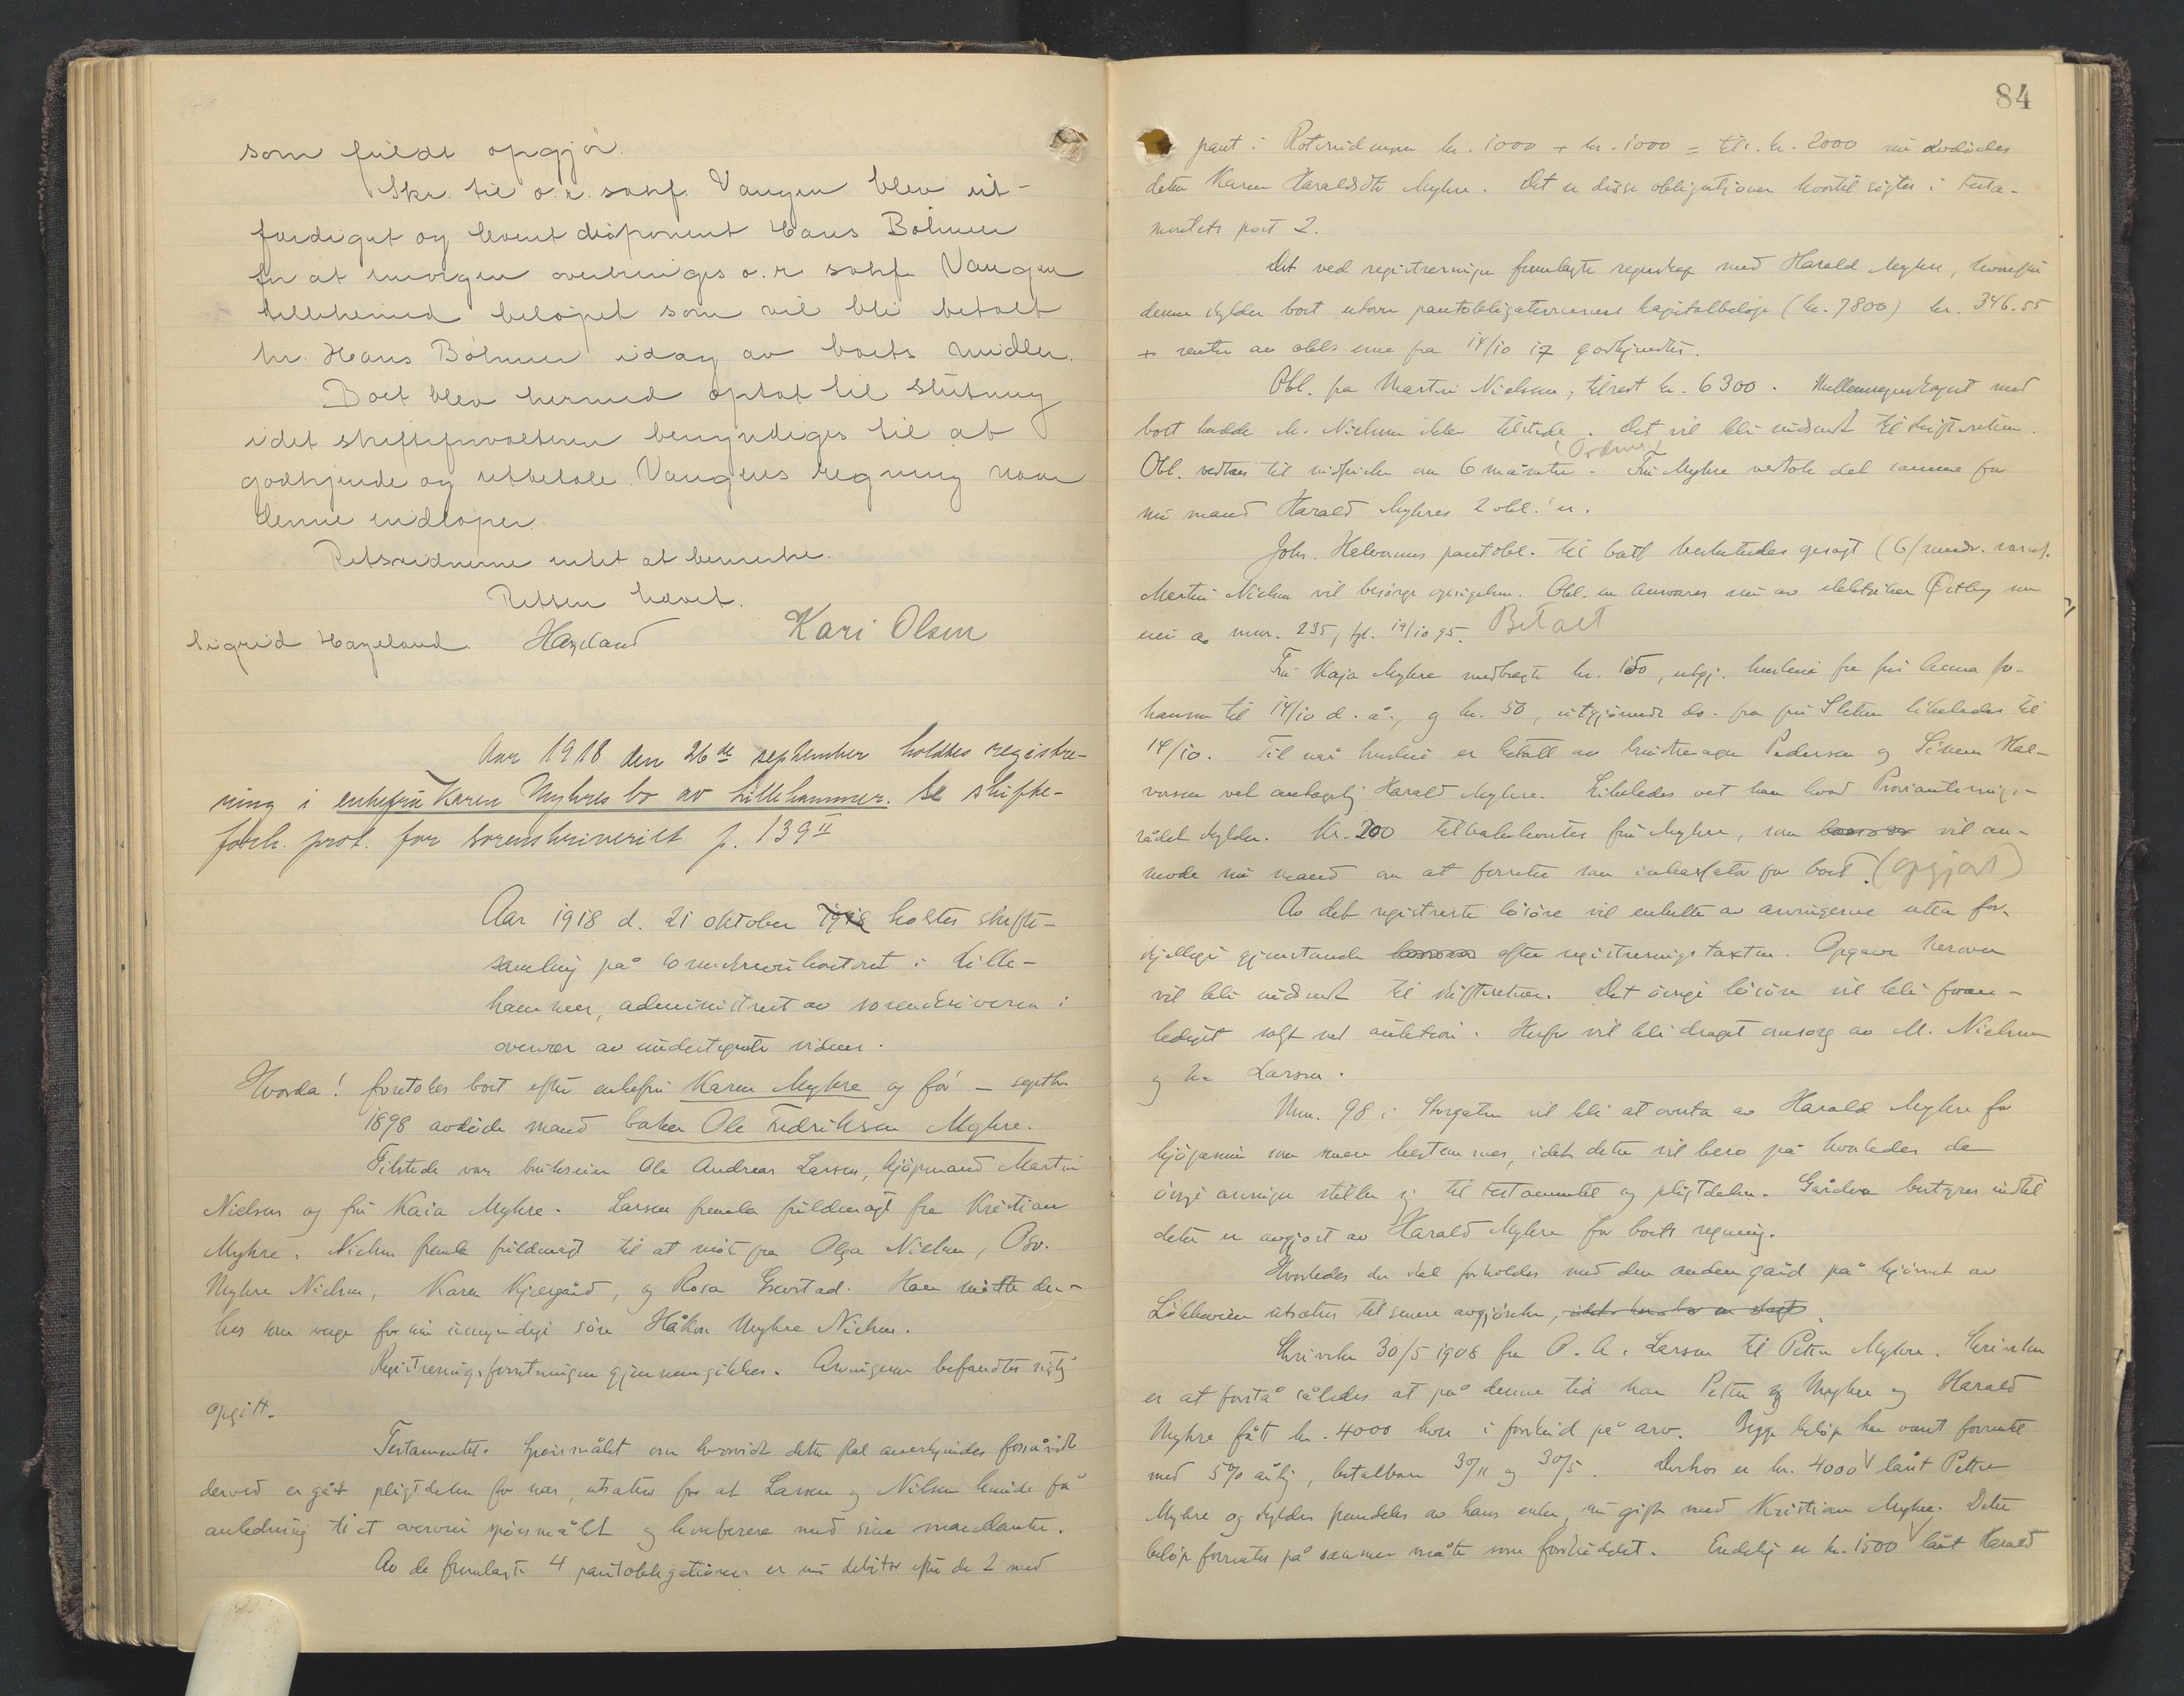 som fuldt opgjør.
Skr. til o.r. sakf. Vangen blev ut-
færdiget og levert disponent Hans Bøhmer
for at imorgen overbringes o.r. sakf. Vangen
tillikemed beløpet som vil bli betalt
hr. Hans Bøhmer idag av boets midler.
Boet blev hermed optat til slutning
idet skifteforvalteren bemyndiges til at
godkjende og utbetale Vangens regning naar
denne indløper.
Retsvidnerne intet at bemerke.
Retten hævet.
Sigrid Hazeland. Hazeland Kari Olsen
Aar 1918 den 26de september holdtes registre-
ring i enkefru Karen Myhres bo av Lillehammer. Se skifte-
forh. prot. for sorenskriveriet p. 139 II
Aar 1918 d. 21 oktober 1918 holtes skifte-
samling på sorenskriverkontoret i Lille-
hammer, administrert av sorenskriveren i
overvær av undertegnete vidner.
Hvorda! foretokes boet efter enkefru Karen Myhre og før – septbr.
1898 avdøde mand baker Ole Fredriksen Myhre.
Tilstede var bruker Ole Andreas Larsen, kjøpmand Martin
Nielsen og fru Kaia Myhre. Larsen fremla fuldmagt fra Kristian
Myhre. Nielsen fremla fuldmagt til at møte fra Olga Nielsen, Osv.
Myhre Nielsen, Karen Kjærgård, og Rosa. Han møtte der-
hos som verge for sin umyndige søn Håkon Myhre Nielsen.
Registreringsforretningen gjennemgikkes. Arvingerne befandtes rigtig
opgitt.
Testamentet. Spørsmålet om hvorvidt dette skal anerkjendes forsåvidt
derved er gåt pligtdelen for nær, utsattes for at Larsen og Nilsen kunde få
anledning til at overveie spørsmålet og konferere med sine mandanter.
Av de fremlagte 4 pantobligationer er nu debitor efter de 2 med
84
pant i kr. 1000 + kr. 1000 = tils. kr. 2000 nu avdødes
datter Karen Haraldsdtr Myhre. Det er disse obligationer hvortil sigtes i testa-
mentets post 2.
Det ved registreringen fremlagte regnskap med Harald Myhre, hvorefter
denne skylder boet utover pantobligationernes kapitalbeløp (kr. 7800) kr. 346.55
+ renter av obl. erne fra 14/10 17 godkjendtes.
Obl. fra Martin Nielsen, tilrest kr. 6300. Mellemregnskapet med
boet hadde M. Nielsen ikke tilstede. Det vil bli indsendt til skifteretten.
(Ordnet)
Obl. vedtaes til indfrielse om 6 måneder. Fru Myhre vertok det samme for
sin mand Harald Myhres 2 obl.'er.
Johs. Halvorsens pantobl. til boet besluttedes opsagt (6/mndr. varsel.
Martin Nielsen vil besørge opsigelsen. Obl. en anvares nu av elektriker Østby som
eier av mnr. 235, tgl. 19/10 95. Betalt
Fru Kaja Myhre medbragte kr. 150, utgj. husleie fra fru Anna Jo-
hansen til 14/10 d. å., og kr. 50, utgjørende do. fra fru Sletten likeledes til
14/10. Til når husleie er betalt av Pedersen og Simen Hal-
vorsen vet antagelig Harald Myhre. Likeledes vet han hvad Provianterings-
rådet skylder. Kr. 200 tilbakeleveres fru Myhre, som vil an-
mode sin mand om at forrette som inkassator for boet. (opgjort)
Av det registrerte løsøre vil enkelte av arvingerne utta for-
skjellige gjenstande efter registreringstaxten. Opgave herover
vil bli indsendt til skifteretten. Det øvrige løsøre vil bli foran-
lediget solgt ved auktion. Herfor vil bli draget omsorg av M. Nielsen
og hr. Larsen.
Mnr. 98 i Storgaten vil bli at overta av Harald Myhre for
kjøpesum som senere bestemmes, idet dette vil bero på hvorledes de
øvrige arvinger stiller sig til testamentet og pligtdelen. Gården bestyres indtil
dette er avgjort av Harald Myhre for boets regning.
Hvorledes der skal forholdes med den anden gård på hjørnet av
Løkkeveien utsættes til senere avgjørelse, idet
Skrivelse 30/5 1908 fra O. A. Larsen til Petter Myhre. Skrivelsen
er at forstå således at på denne tid har Petter Myhre og Harald
Myhre fåt kr. 4000 hver i forskud på arv. Begge beløp har været forrentet
med 5% årlig, betalbare 30/11 og 30/5. Derhos er kr. 4000 lånt Petter
Myhre og skyldes fremdeles av hans enke, nu gift med Kristian Myhre. Dette
beløp forrentes på samme måte som forskuddet. Endelig er kr. 1500 lånt Harald